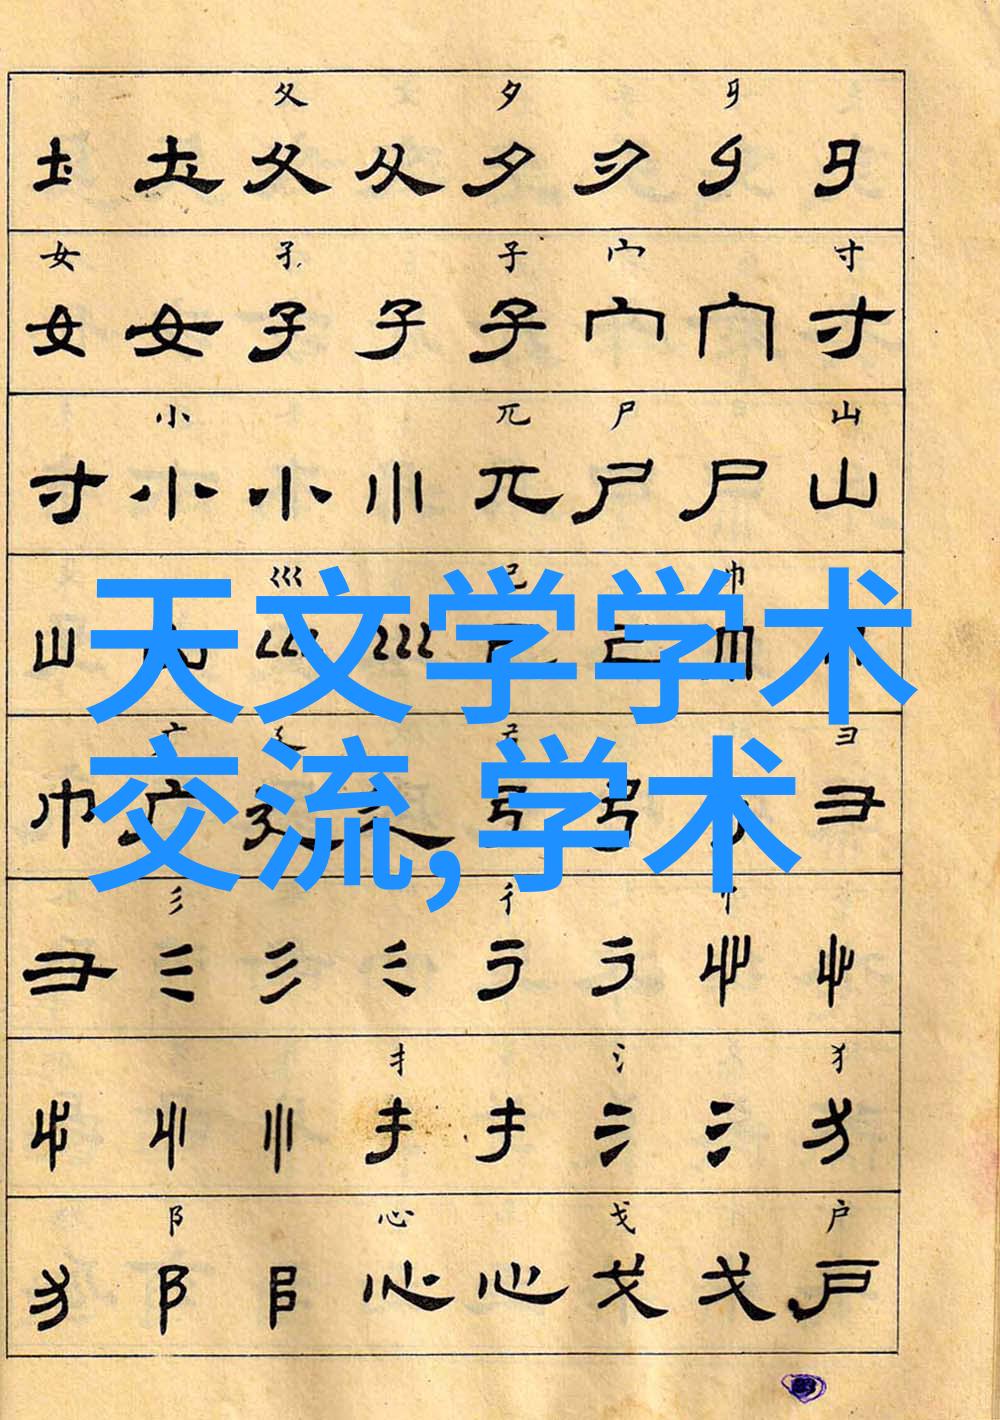 夂 夕
圡 圡 夂 夂 夕 夕
女 孑 子 宀 寸
女 女 子 子 子 宀 宀 寸
小 兀 尸 山
寸 小 小 小 兀 尸 尸 山
巛 己 巾
天文学学术
山 巛 巛 己
广 廴 弓 彐
交流,学术
巾 广 廴 廴 弓 弓 彐
彡 彳
彐 彡 彡 彡 彳 彳
扌 氵 犭
扌 扌 氵 氵 犭
阝 心 戈 户
犭 阝 阝 心 心 戈 戈 户